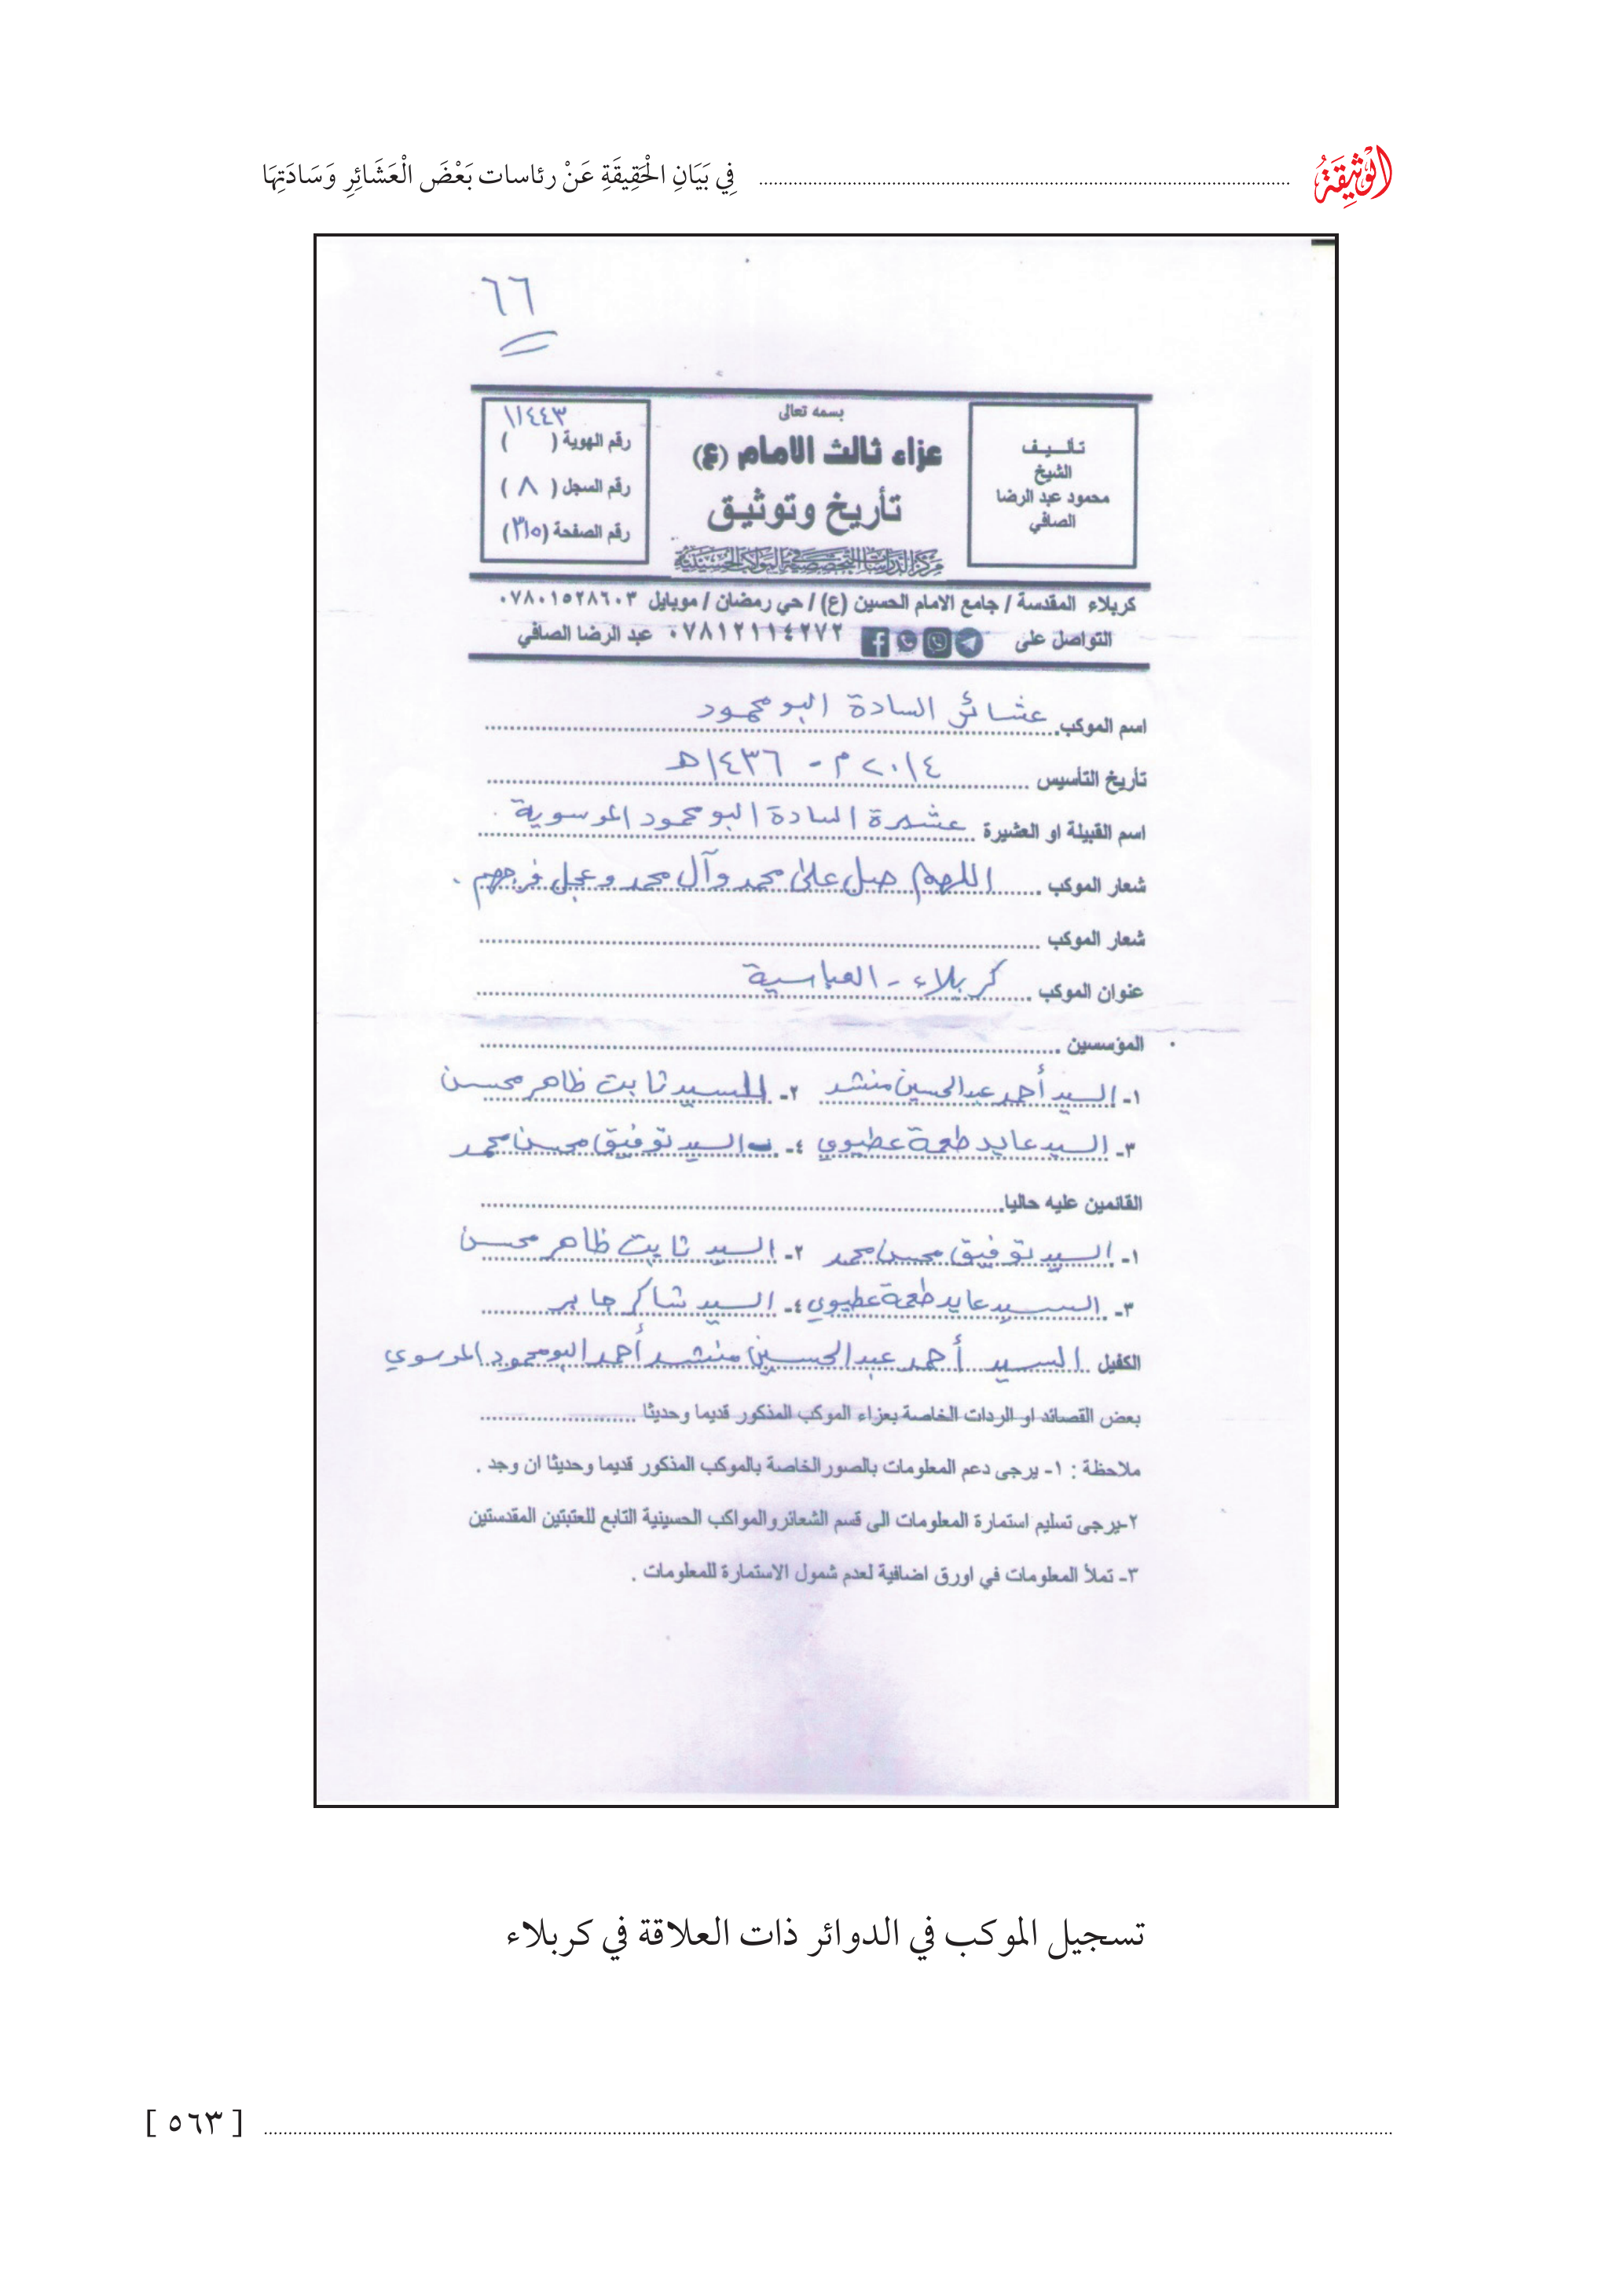 الوثيقة ........ فِي بَيَانِ الْحَقِيقَةِ عَنْ رئاسات بَعْضَ الْعَشَائِرِ وَسَادَتِهَا
٦٦
تأليف
الشيخ
محمود عبد الرضا
الصافي
بسمه تعالى
عزاء ثالث الامام (ع)
تأريخ وتوثيق
مركز الدراسات التخصصية في المواكب الحسينية
١١٤٤٣
رقم الهوية ( )
رقم السجل ( ٨ )
رقم الصفحة (٣١٥)
كربلاء المقدسة / جامع الامام الحسين (ع) / حي رمضان / موبايل ٠٧٨٠١٥٢٨٦٠٣
التواصل على ٠٧٨١٢١١٤٢٧٢ عبد الرضا الصافي
اسم الموكب. عشائر السادة البو محمود
تأريخ التأسيس ٢٠١٤ م - ١٤٣٦ هـ
اسم القبيلة او العشيرة عشيرة السادة البو محمود الموسوية .
شعار الموكب اللهم صل على محمد وآل محمد وعجل فرجهم .
شعار الموكب
عنوان الموكب كربلاء - العباسية
المؤسسين
١- السيد أحمد عبد الحسين منشد ٢- السيد ثابت ظاهر محسن
٣- السيد عايد طعمة عطيوي ٤- السيد توفيق محسن محمد
القائمين عليه حاليا
١- السيد توفيق محسن محمد ٢- السيد ثابت ظاهر محسن
٣- السيد عايد طعمة عطيوي ٤- السيد شاكر جابر
الكفيل السيد أحمد عبد الحسين منشد أحمد البو محمود الموسوي
بعض القصائد او الردات الخاصة بعزاء الموكب المذكور قديما وحديثا
ملاحظة : ١- يرجى دعم المعلومات بالصور الخاصة بالموكب المذكور قديما وحديثا ان وجد .
٢-يرجى تسليم استمارة المعلومات الى قسم الشعائر والمواكب الحسينية التابع للعتبتين المقدستين
٣- تملأ المعلومات في اورق اضافية لعدم شمول الاستمارة للمعلومات .
تسجيل الموكب في الدوائر ذات العلاقة في كربلاء
[ ٥٦٣ ]